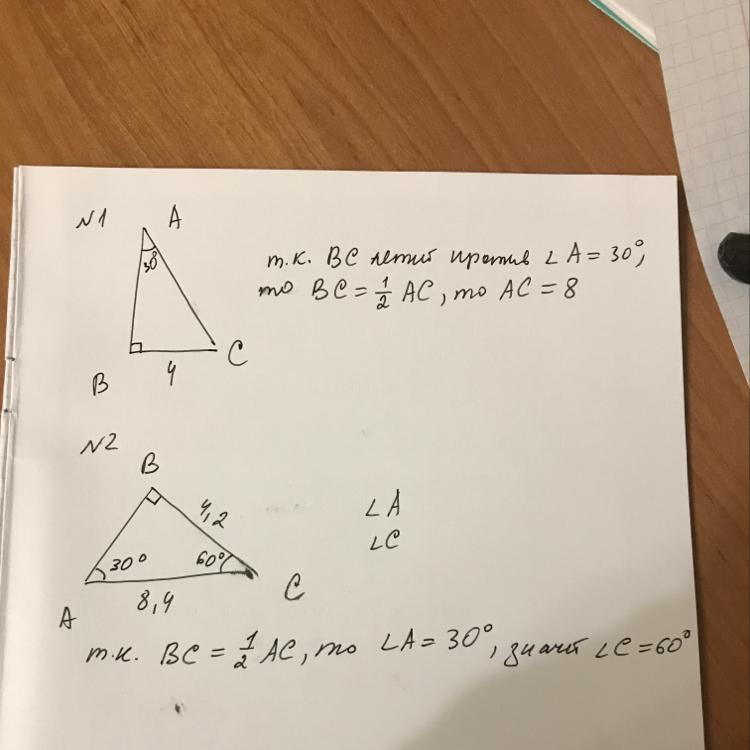 N1
A
30°
B
4
C
т.к. BC лежит против ∠A = 30°,
то BC = 1/2 AC, то AC = 8
N2
B
4,2
30°
60°
A
8,4
C
∠A
∠C
т.к. BC = 1/2 AC, то ∠A = 30°, значит ∠C = 60°